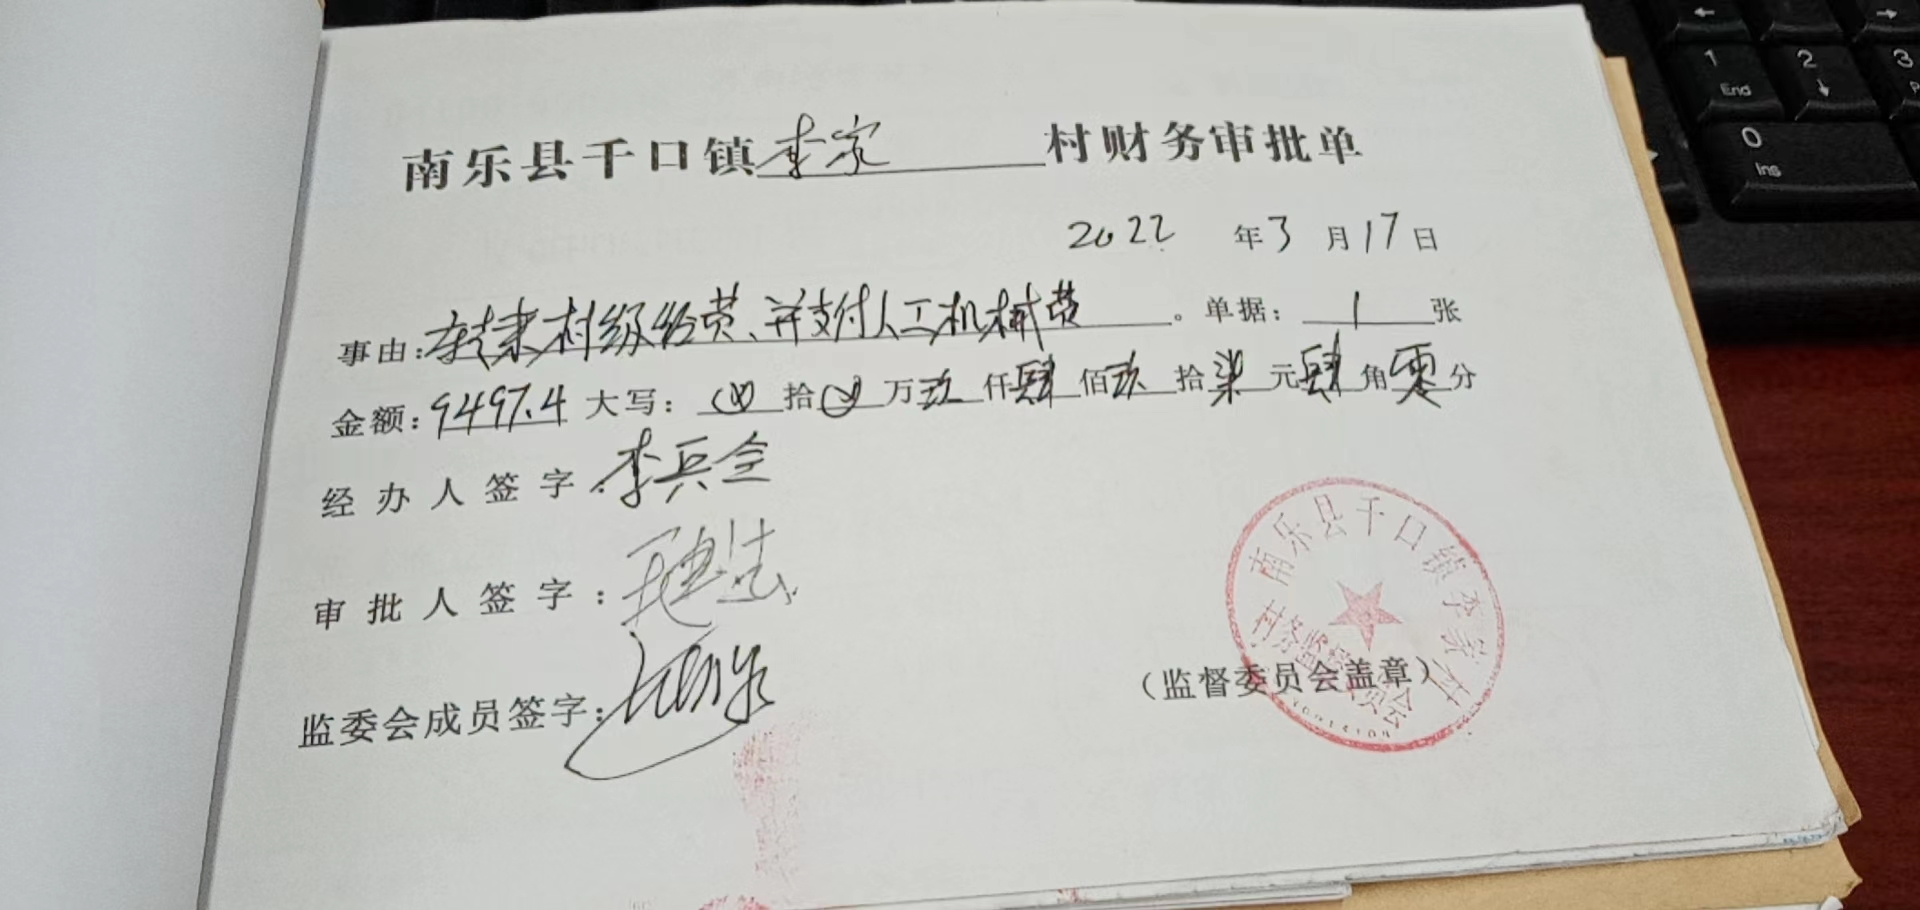 南乐县千口镇李家村财务审批单
2022年3月17日
事由:转来村级经费、并支付人工机械费。单据:1张
金额:9497.4大写:⊗拾⊗万玖仟肆佰玖拾柒元肆角零分
经办人签字:李兵全
审批人签字:
监委会成员签字:
(监督委员会盖章)
南乐县千口镇李家村
村务监督委员会
1 End
2
3
0 Ins